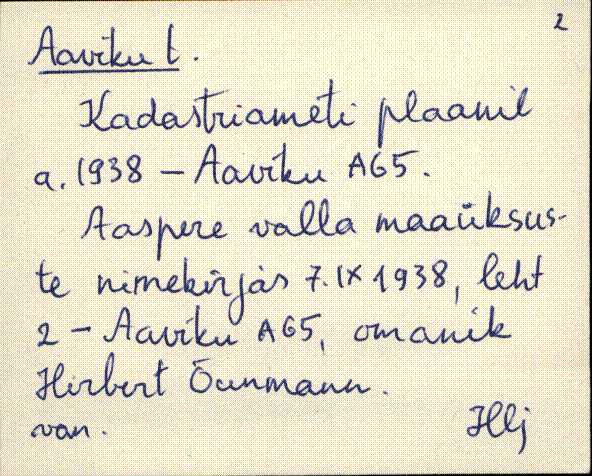 2
Aaviku t.
Kadastriameti plaanil
a. 1938 – Aaviku A65.
Aaspere valla maaüksus-
te nimekirjas 7. IX 1938, leht
2 – Aaviku A65, omanik
Herbert Õunmann.
van.